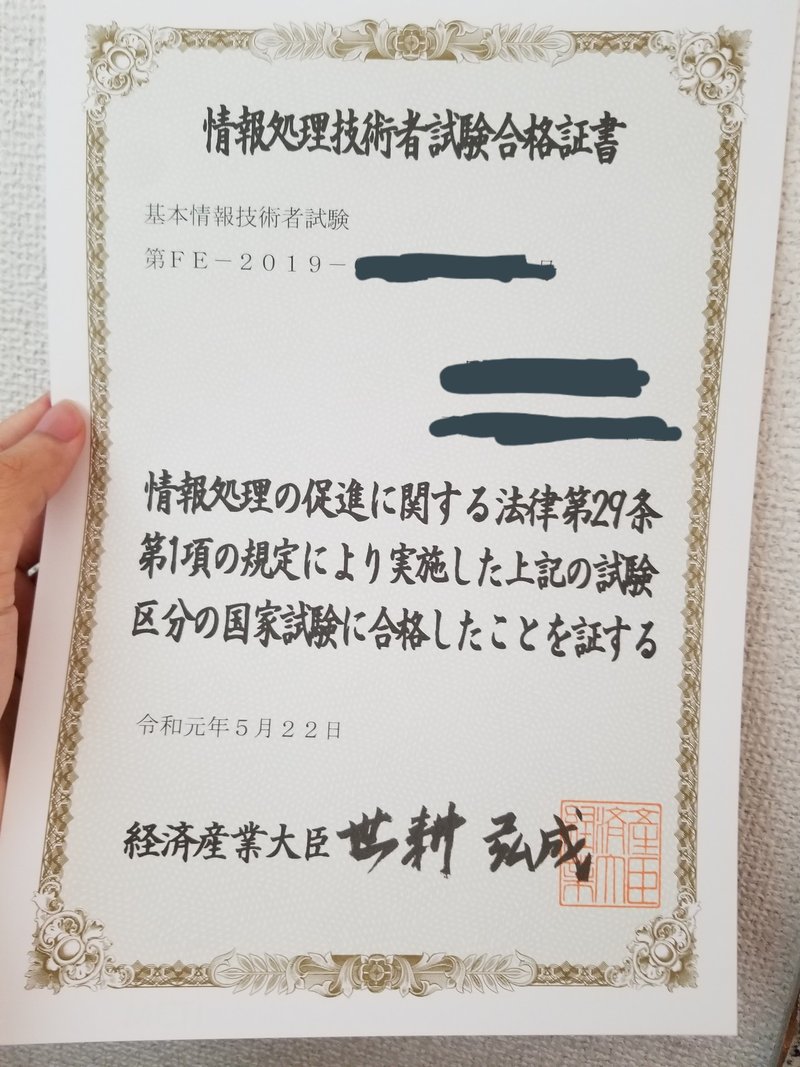 情報処理技術者試験合格証書
基本情報技術者試験
第FE－2019－
情報処理の促進に関する法律第29条
第1項の規定により実施した上記の試験
区分の国家試験に合格したことを証する
令和元年5月22日
経済産業大臣 世耕 弘成